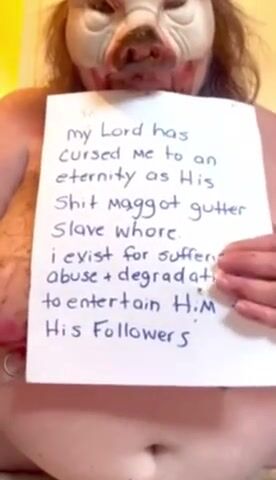 my Lord has
cursed me to an
eternity as His
Shit Maggot gutter
Slave whore.
i exist for
abuse + 
to entertain Him
His Followers